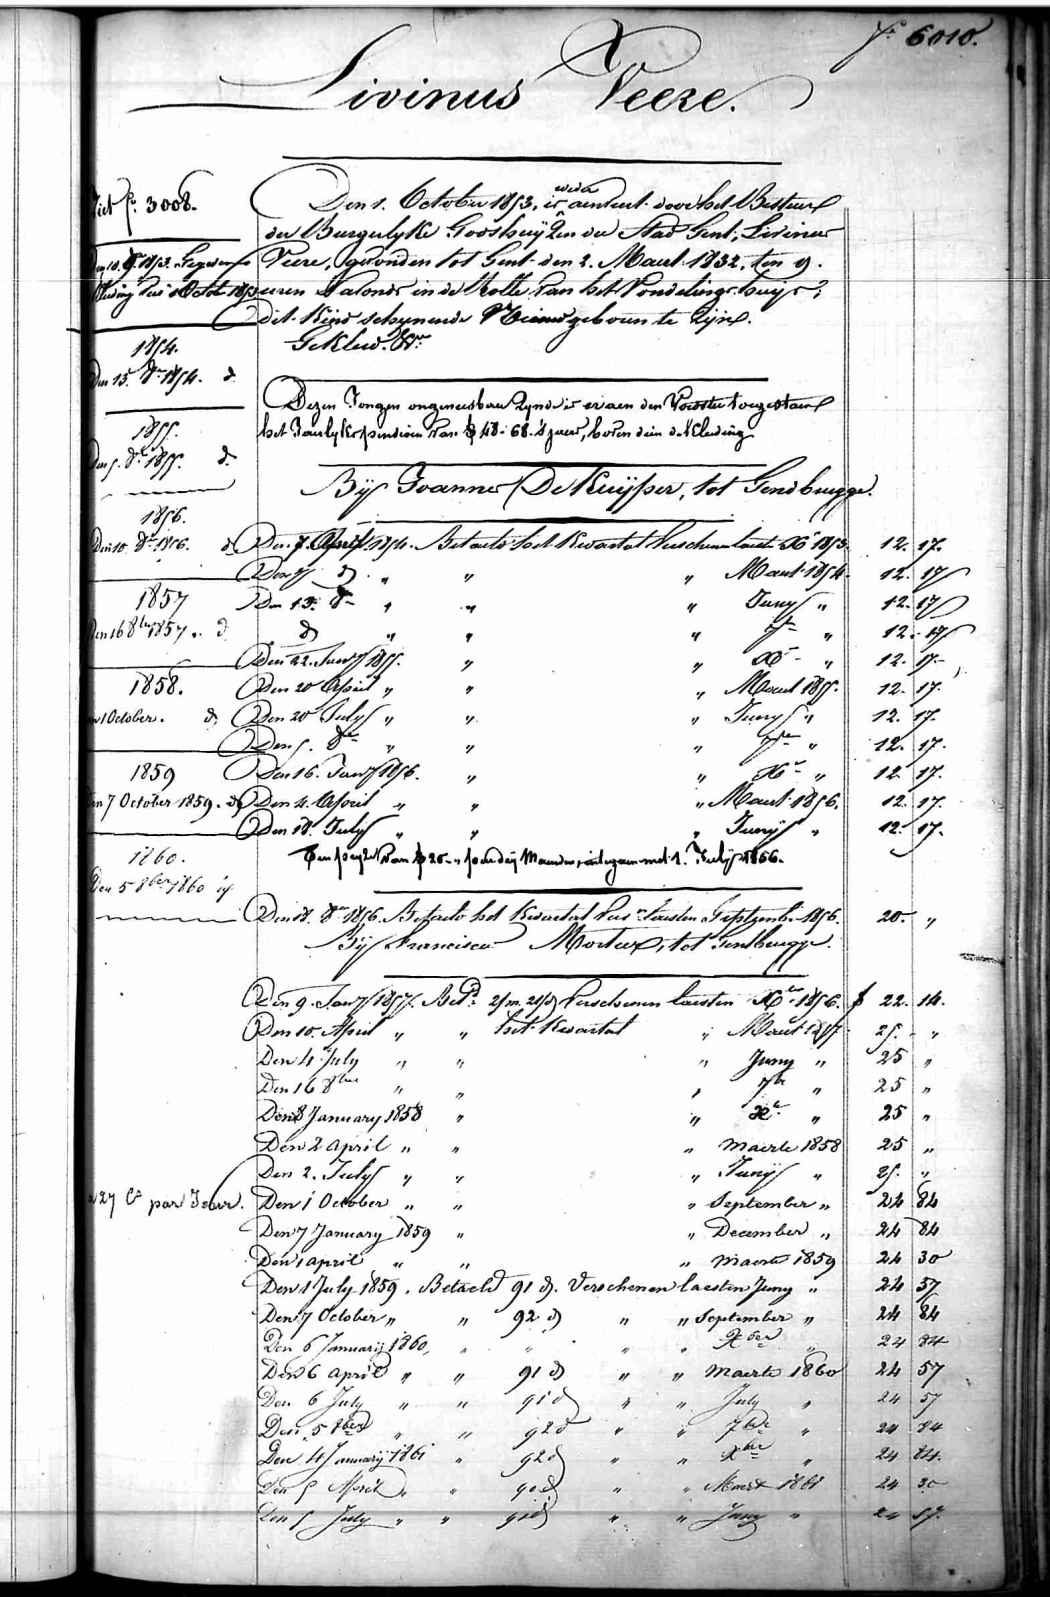 f° 6010.
Livinus Veere.
Ziet f° 3008.
Den 1. October 1853, is weder aenveert door het Bestuur
der Burgerlyke Godshuyzen der Stad Gent, Livinus
Veere, gevonden tot Gent den 2. Maert 1832, ten 9.
uren 's avonds in de Rolle van het Vondelingshuys;
dit Kind schynende Nieuwgeboren te zyn.
Gekleed. &a
1854.
Den 15. 8er 1854. d°
1855.
Den 5. 8er 1855. d°
1856.
Den 10. 8er 1856. d°
1857
Den 16 8ber 1857 " d°
1858.
1 October. d°
1859
Den 7 October 1859. d°
1860.
Den 5 8ber 1860 
Dezen Jongen ongeneesbaer zynde is er aen den Voedster toegestaen
het Jaerlyks pensioen van f 48-68. 's jaers, boven dien de Kleeding
By Joannes De Kuyper, tot Gendbrugge.
Den 7. April 1854. Betaeld het Kwartael verschenen laest Xr 1853. 12. 17.
Den 7 d° " " " Maert 1854. 12. 17
Den 13. 8er " " " Juny " 12. 17
d° " " " 7er " 12. 17
Den 22. Janry 1855. " " Xr " 12. 17.
Den 20 April " " " Maert 1855. 12. 17.
Den 20 July " " " Juny " 12. 17.
Den 5. 8er " " " 7er " 12. 17.
Den 16. Janry 1856. " " Xr " 12. 17.
Den 4. April " " " Maert 1856. 12. 17.
Den 18. July " " " Juny " 12. 17.
Den 18. 8er 1856. Betaeld het Kwartael verschenen laesten Septemb. 1856. 20. "
By Francisca Mortier, tot Gentbrugge.
Den 9. Janry 1857. Betd. 2/m. 21/d verschenen laesten Xer 1856. f 22. 14.
Den 10. April " " het Kwartael " Maert 1857. 25. "
Den 4 July " " " Juny " 25 "
Den 16 8ber " " 7er " 25 "
Den 8 January 1858 " " Xr " 25 "
Den 2 april " " " maerte 1858 25 "
Den 2. July " " " Juny " 25. "
27 Cs par Jour.
Den 1 October " " " September " 24 84
Den 7 January 1859 " " December " 24 84
Den 1 april " " " maerte 1859 24 30
Den 1 July 1859. Betaeld 91 d. Verschenen laesten Juny " 24 57
Den 7 October " " 92 d " " September " 24 84
Den 6 January 1860, " " " " Xber " 24 84
Den 6 april " " 91 d " " maerte 1860 24 57
Den 6 July " " 91 d " " July " 24 57
Den 5 8ber " " 92 d " " 7ber " 24 84
Den 4 January 1861 " 92 d " " Xber " 24 84.
Den 5 April " " 90 d " " Maert 1861 24 30
Den 5 July " " 91 d " " Juny " 24 57.